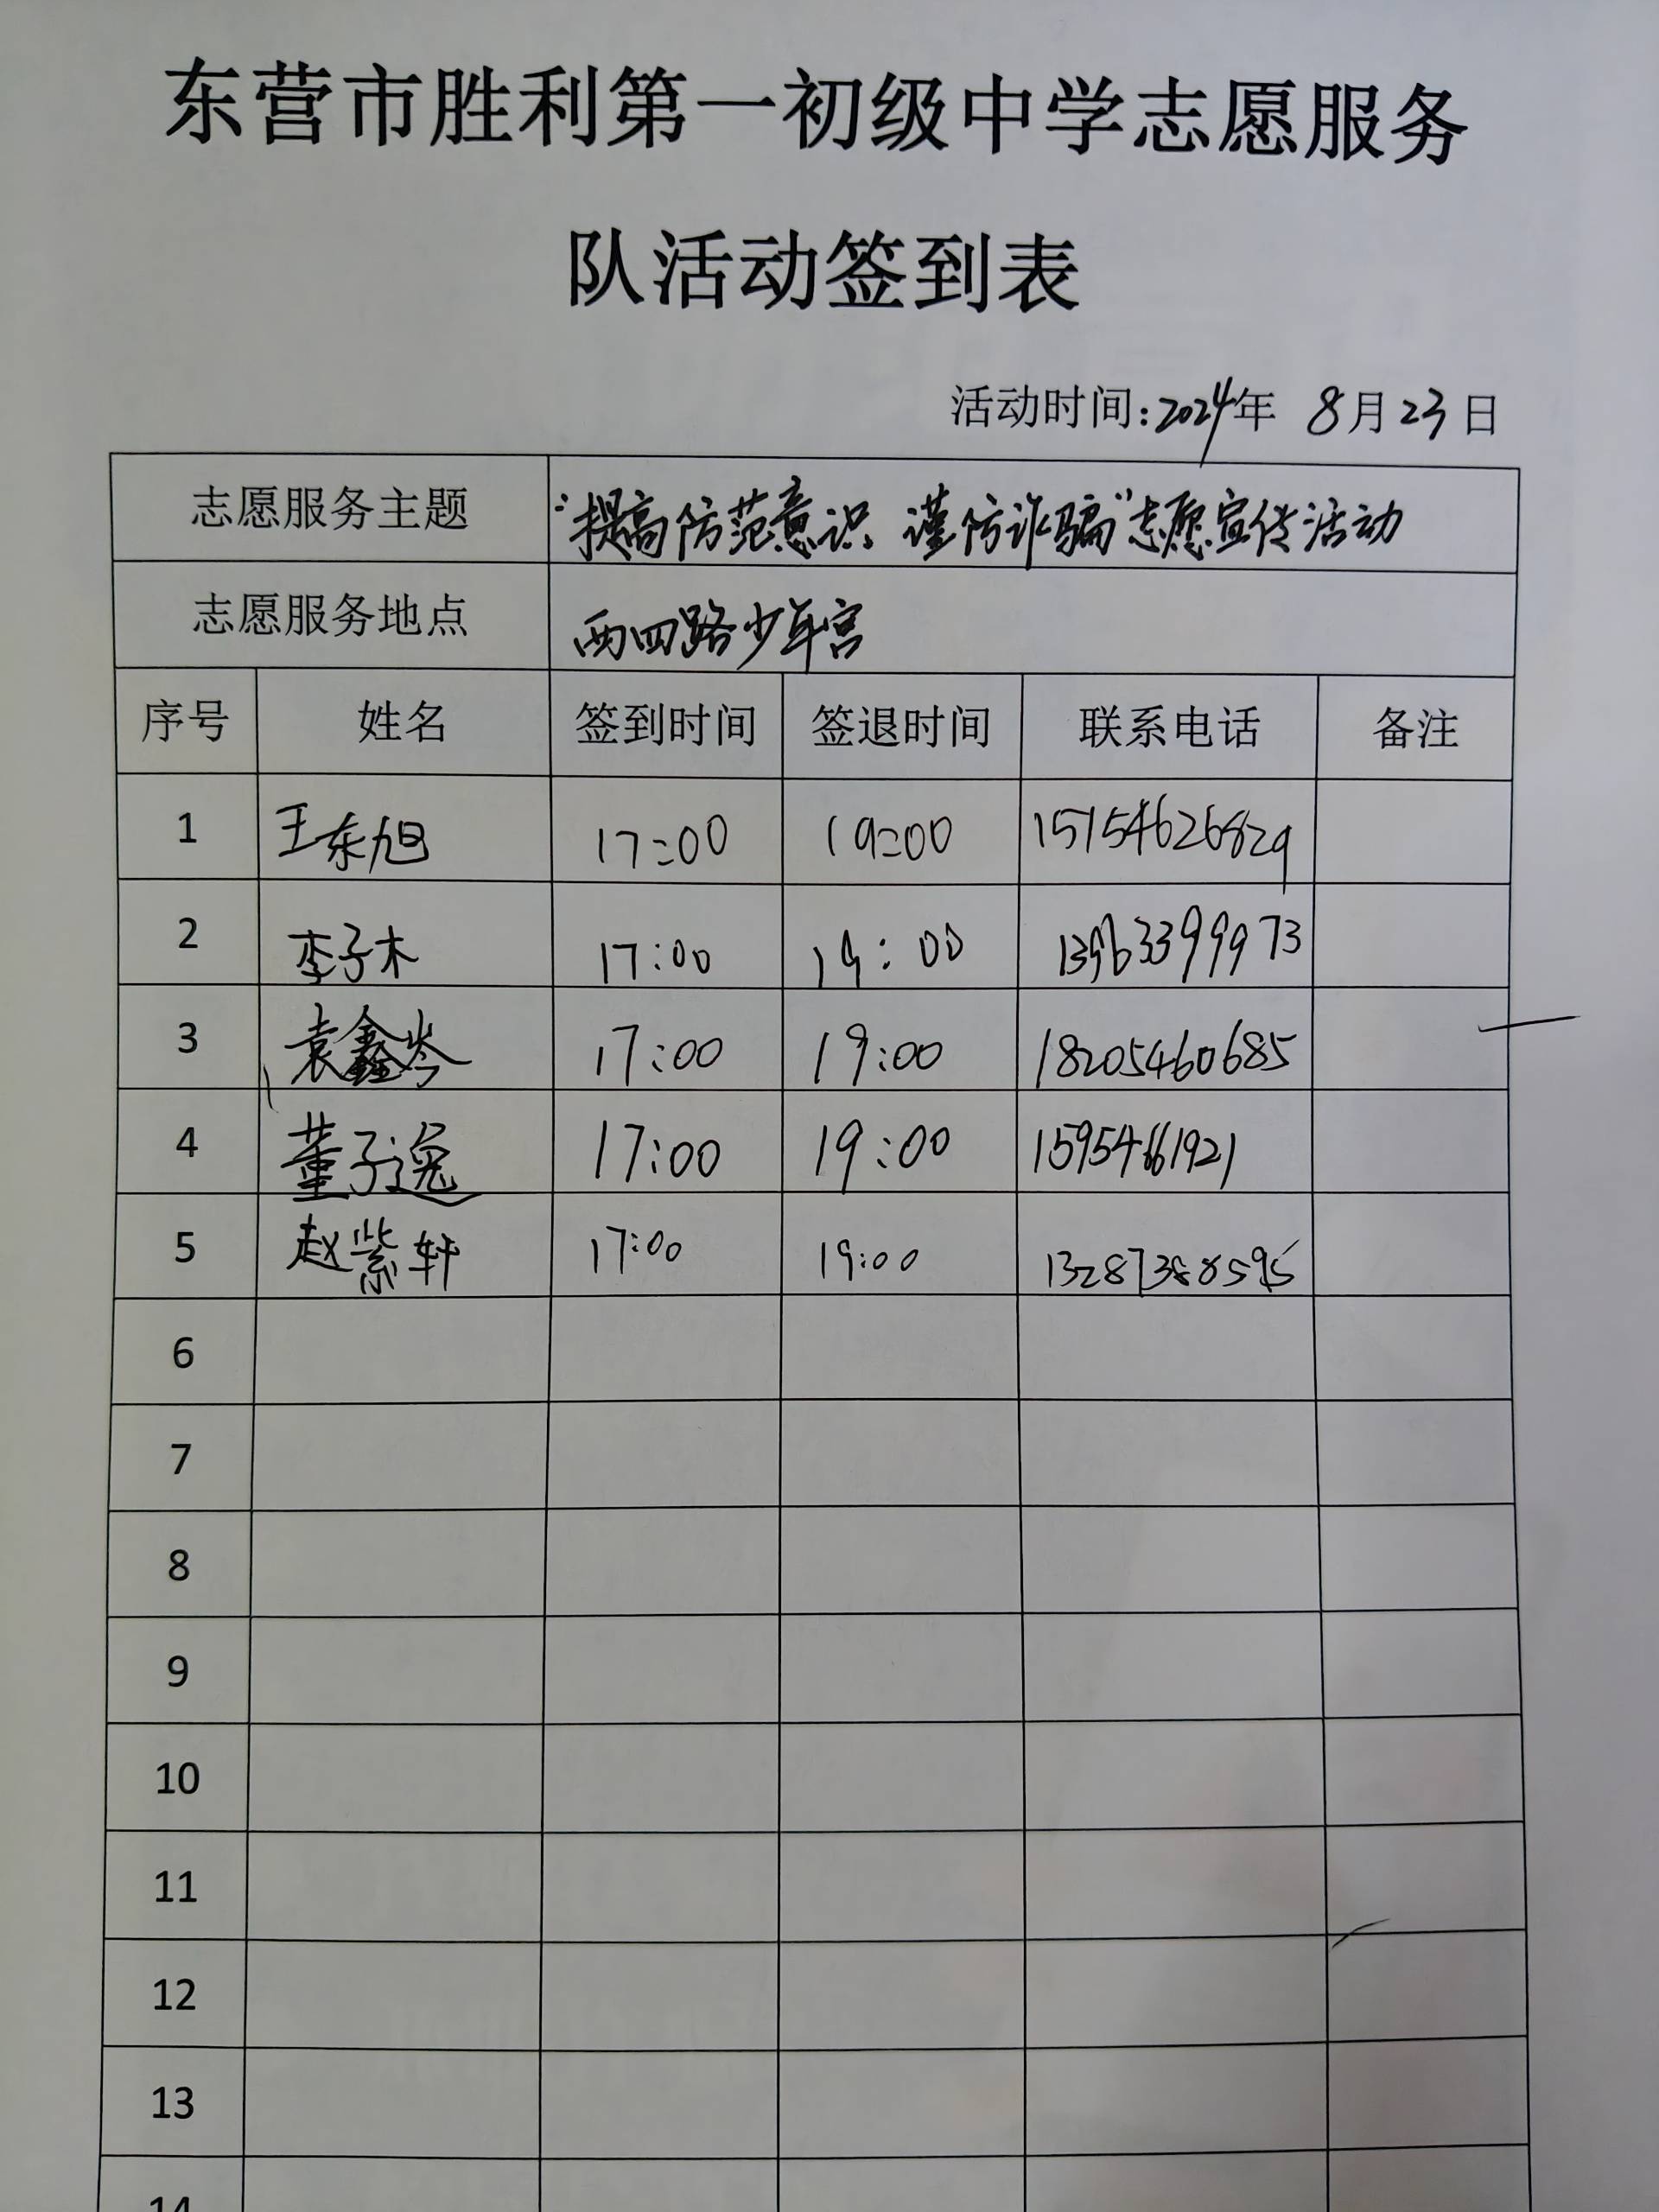 东营市胜利第一初级中学志愿服务
队活动签到表
活动时间:2024年 8月23日
志愿服务主题 “提高防范意识 谨防诈骗”志愿宣传活动
志愿服务地点 西四路少年宫
序号 姓名 签到时间 签退时间 联系电话 备注
1 王东旭 17:00 19:00 15154626829
2 李子木 17:00 19:00 13963399973
3 袁鑫岑 17:00 19:00 18205460685
4 董子逸 17:00 19:00 15954661921
5 赵紫轩 17:00 19:00 13287388595
6
7
8
9
10
11
12
13
14